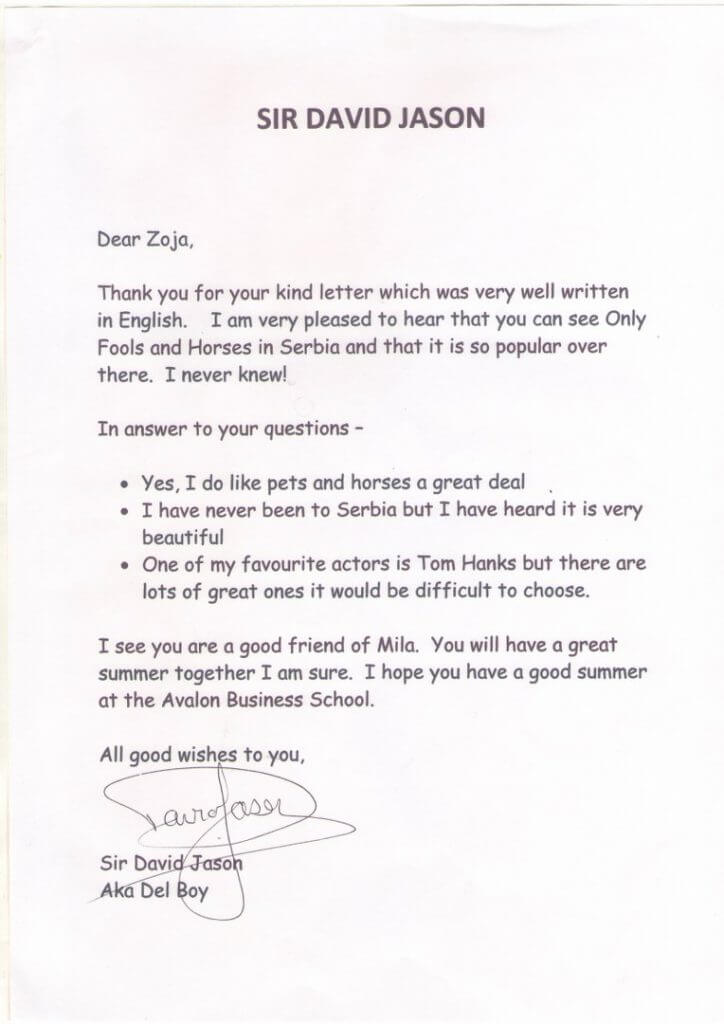 SIR DAVID JASON
Dear Zoja,
Thank you for your kind letter which was very well written
in English. I am very pleased to hear that you can see Only
Fools and Horses in Serbia and that it is so popular over
there. I never knew!
In answer to your questions –
• Yes, I do like pets and horses a great deal
• I have never been to Serbia but I have heard it is very
beautiful
• One of my favourite actors is Tom Hanks but there are
lots of great ones it would be difficult to choose.
I see you are a good friend of Mila. You will have a great
summer together I am sure. I hope you have a good summer
at the Avalon Business School.
All good wishes to you,
David Jason
Sir David Jason
Aka Del Boy